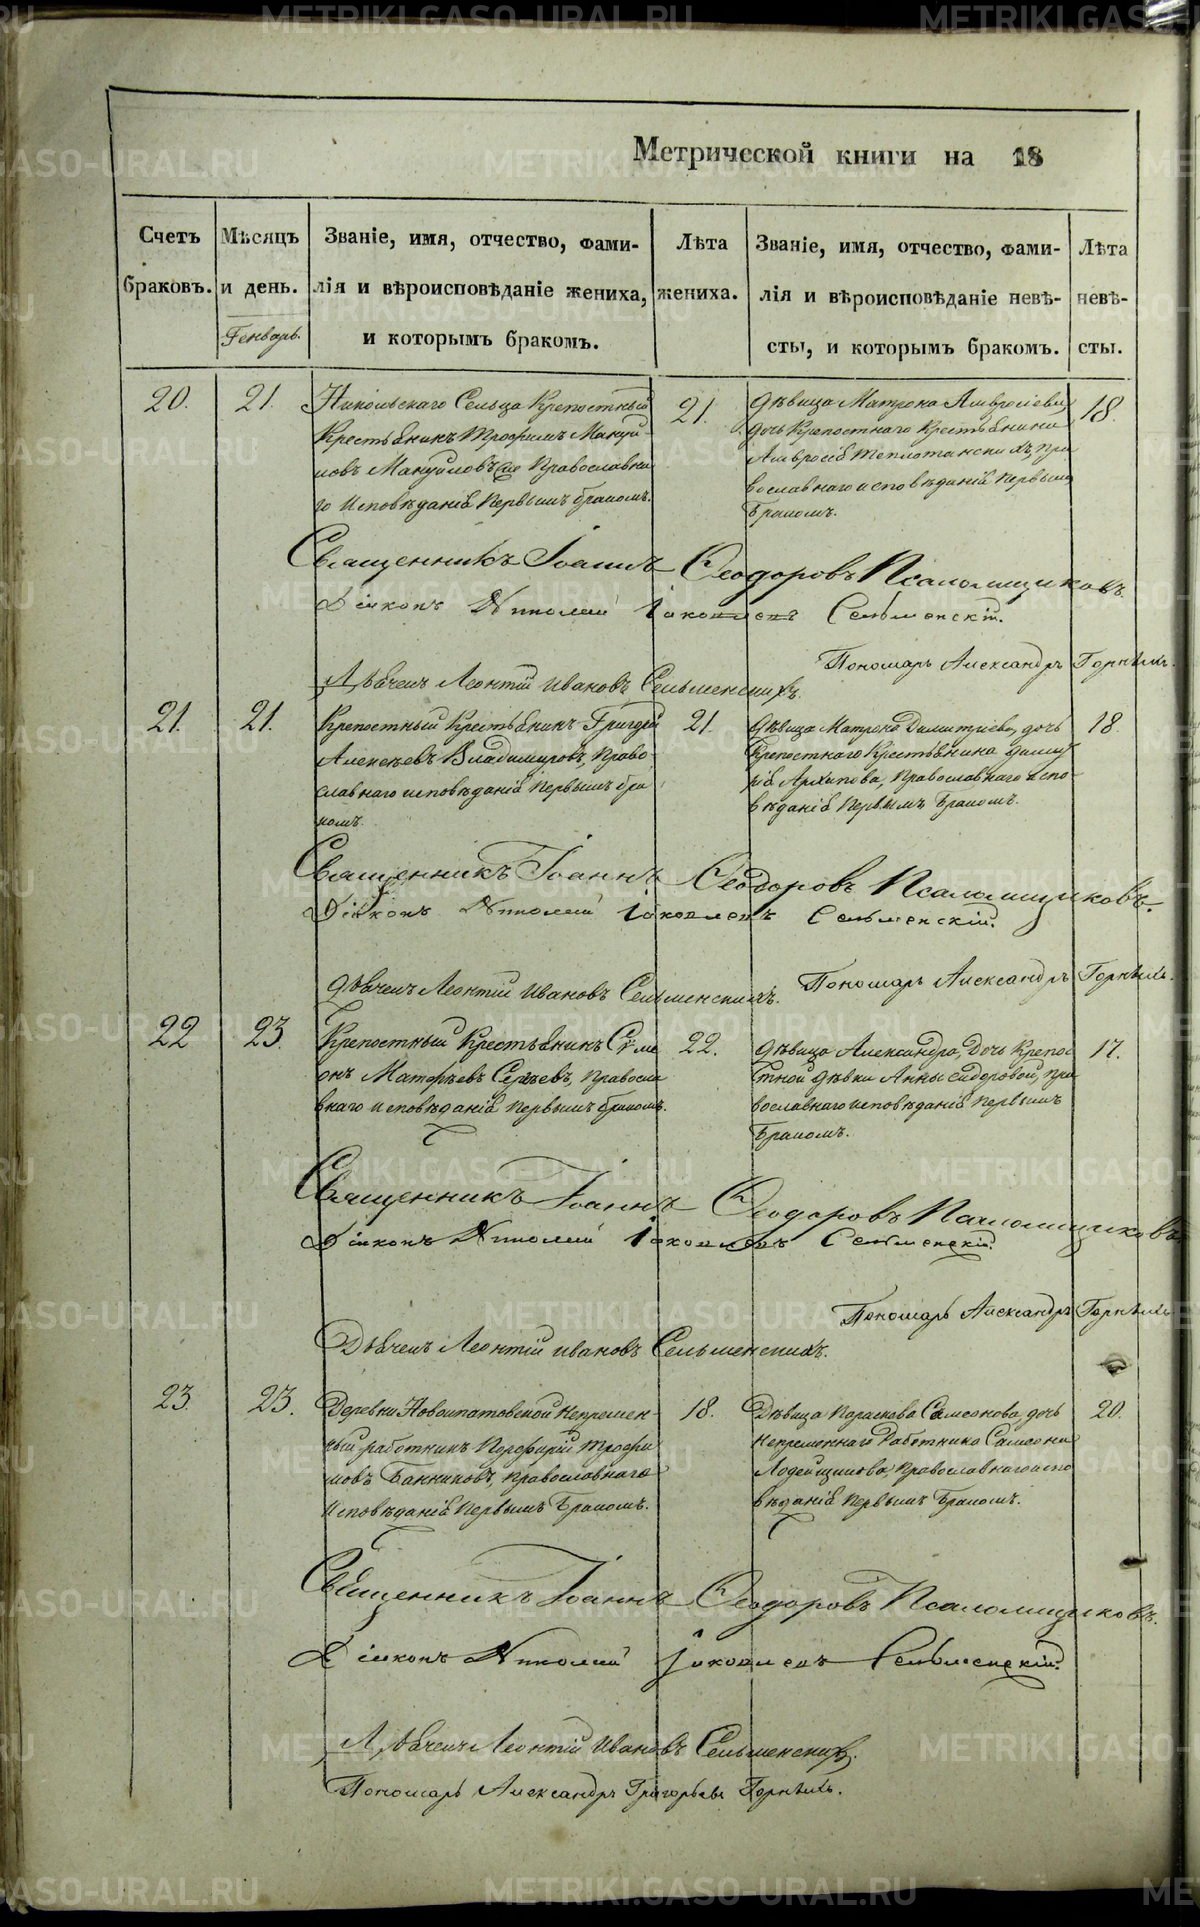 Метрической книги на 18
Счетъ браковъ.
Мѣсяцъ и день.
Генварь.
Званіе, имя, отчество, фами-
лія и вѣроисповѣданіе жениха,
и которымъ бракомъ.
Лѣта жениха.
Званіе, имя, отчество, фами-
лія и вѣроисповѣданіе невѣ-
сты, и которымъ бракомъ.
Лѣта невѣ-
сты.
20.
21.
Никольскаго Сельца Крепостный
Крестьянинъ Трофимъ Мануй-
ловъ Мануйловъ Православна
го Исповѣданія Первымъ бракомъ.
21.
Дѣвица Матрона Амвросіева
дочь Крепостнаго Крестьянина
Амвросія Пра
вославнаго исповѣданія первымъ
Бракомъ.
18.
Священникъ Іоаннъ Ѳеодоровъ Псаломщиковъ.
Діяконъ Николай Іаковлевъ Сельменскій.
Пономарь Александръ Горныхъ.
Дьячекъ Леонтій Ивановъ Сельменскихъ.
21.
21.
Крепостный Крестьянинъ Григорій
Алексѣевъ Владимировъ, Право-
славнаго исповѣданія Первымъ бра
комъ.
21.
Дѣвица Матрона Димитріева, дочь
Крепостнаго Крестьянина Димит
рія Архипова, Православнаго испо-
вѣданія Первымъ Бракомъ.
18.
Священникъ Іоаннъ Ѳеодоровъ Псаломщиковъ.
Діяконъ Николай Іаковлевъ Сельменскій.
Пономарь Александръ Горныхъ.
Дьячекъ Леонтій Ивановъ Сельменскихъ.
22
23.
Крепостный Крестьянинъ Симе
онъ Матфѣевъ Сергѣевъ, Правосла
внаго исповѣданія первымъ бракомъ.
22.
Дѣвица Александра, Дочь Крепос
тной дѣвки Анны Сидоровой, Пра
вославнаго исповѣданія Первымъ
Бракомъ.
17.
Священникъ Іоаннъ Ѳеодоровъ Псаломщиковъ.
Діяконъ Николай Іаковлевъ Сельменскій.
Пономарь Александръ Горныхъ
Дьячекъ Леонтій Ивановъ Сельменскихъ.
23.
23.
Деревни Новоипатовской Непремен-
ный работникъ Порфирій Трофи
мовъ Банниковъ, православнаго
Исповѣданія Первымъ Бракомъ.
18.
Дѣвица Параскева Самсонова, дочь
Непременнаго Работника Самсона
Лодейщикова, Православнаго испо
вѣданія Первымъ Бракомъ.
20.
Священникъ Іоаннъ Ѳеодоровъ Псаломщиковъ.
Діяконъ Николай Іаковлевъ Сельменскій.
Дьячекъ Леонтій Ивановъ Сельменскихъ.
Пономарь Александръ Григорьевъ Горныхъ.